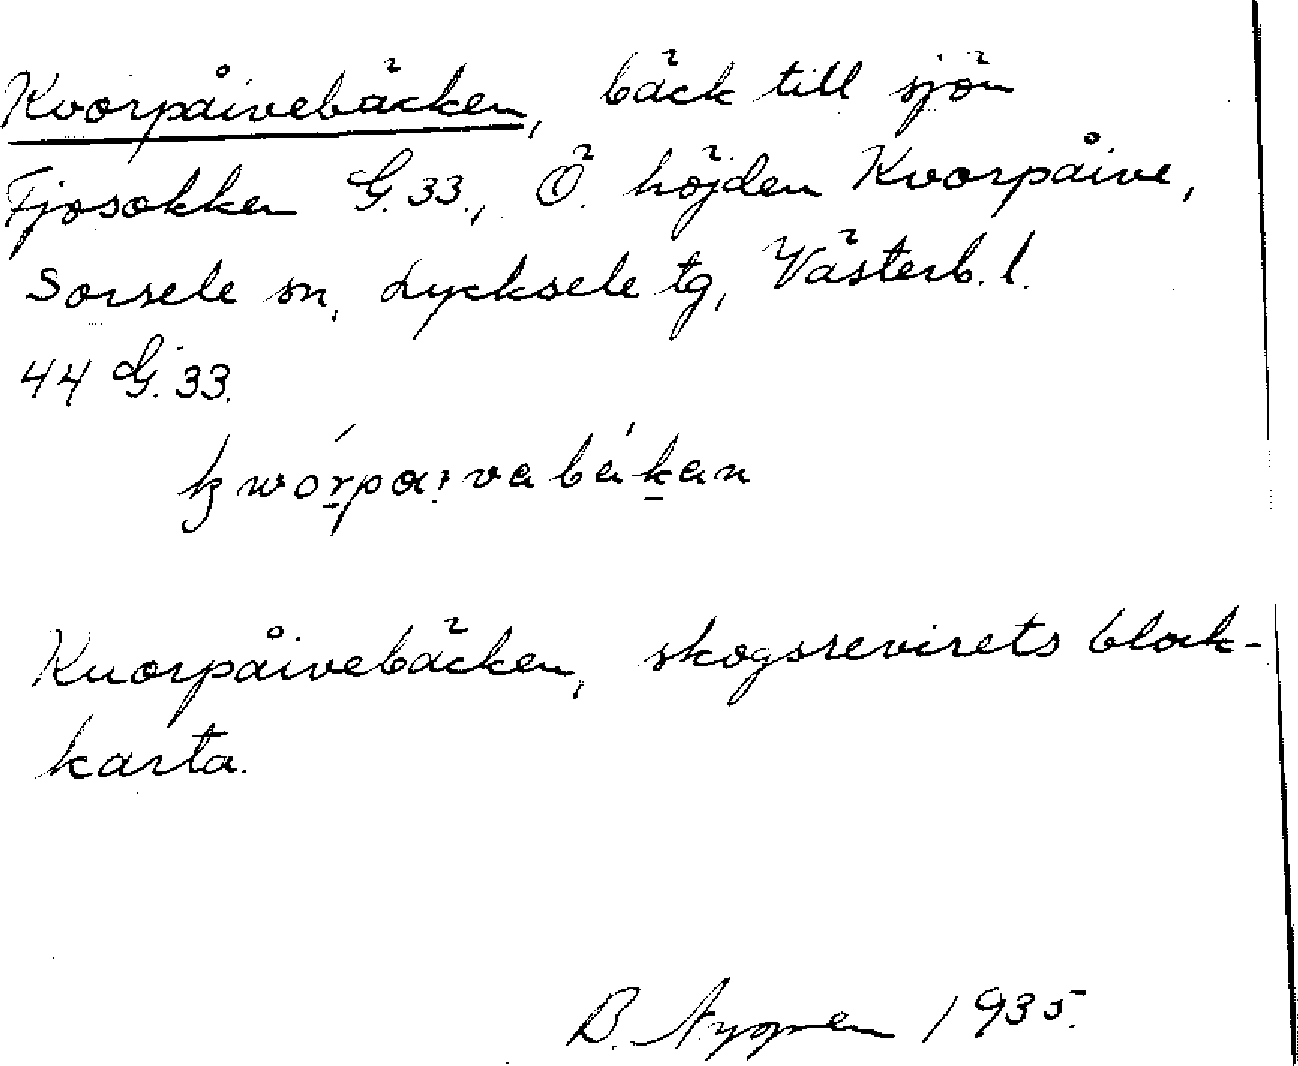 Kvorpåivebäcken, bäck till sjön
Fjosokken G.33., Ö. höjden Kvorpåive,
Sorsele sn, Lycksele tg, Västerb. l.
44 G. 33.
Kuorpåivebäcken, skogsrevirets block-
karta.
B. Nygren 1935.